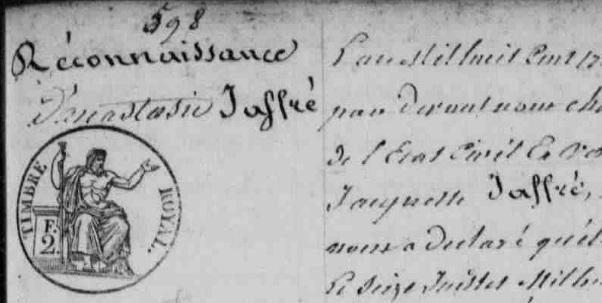 598
Réconnaissance
D'anastasie Jaffré
TIMBRE ROYAL.
F.
2.
L'an Mil huit Cent
par devant nous
de l'Etat Civil
Jacquette Jaffré,
nous a déclaré qu'el
Le Seize Juillet Mil hu